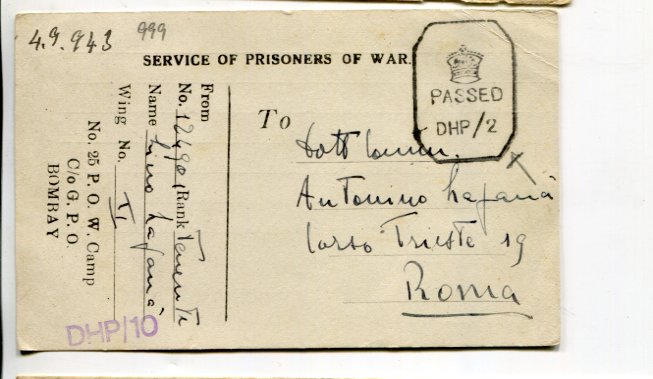 4.9.943
999
SERVICE OF PRISONERS OF WAR.
PASSED
DHP/2
From
No. 12490, Rank Tenente
Name Lino Lafanà
Wing No. XI
No. 25 P. O. W. Camp
C/o G. P. O.
BOMBAY
To
Dott
Antonino Lafanà
Corso Trieste 19
Roma
DHP/10